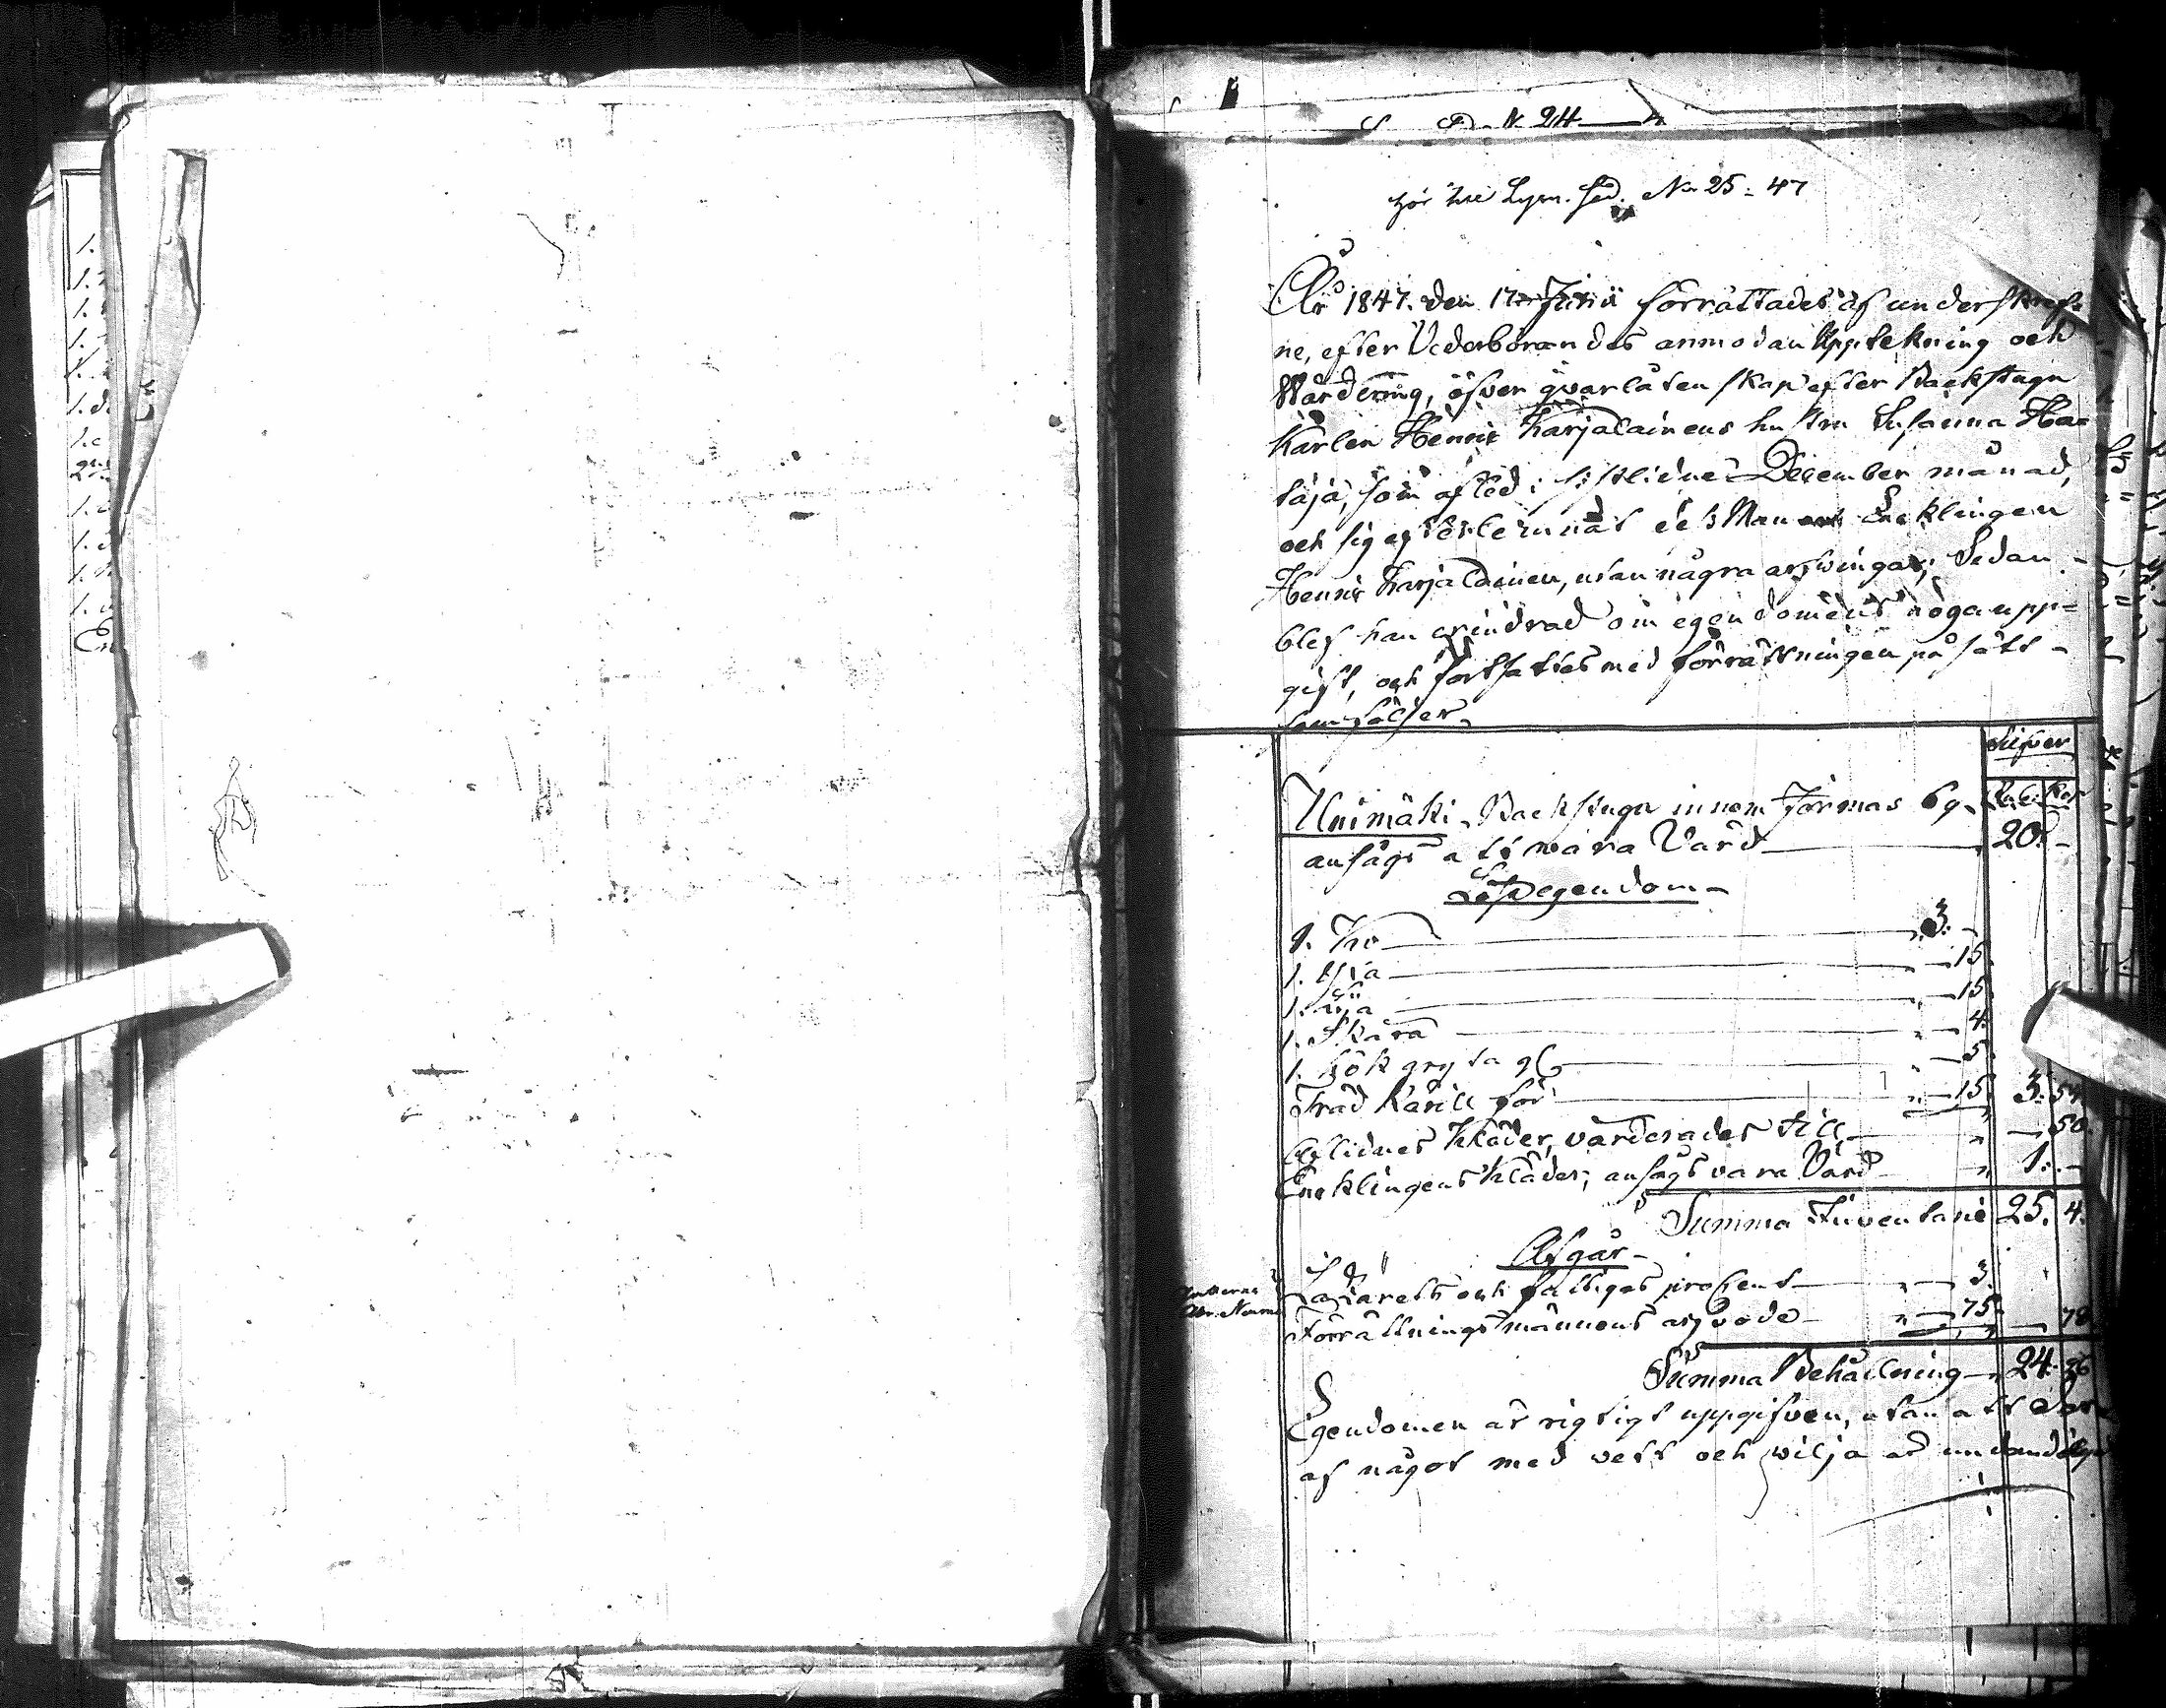 N. 24
hör till Lysn. Sed. No 25 - 47
År 1847. den 17 Junii förrättades af underskref-
ne, efter Vederbörandes anmodan Uppteckning och
Wärdering, öfver qvarlåtenskap efter Backstugu
Karlen Henric Karjalainens hustru Susanna Ha-
taja, som afled i sistlidne December månad,
och sig efterlemnat dess Man Encklingen
Henric Karjalainen, utan några arfwingar; Sedan
blef han erindrad om egendomens noga upp-
gift, och fortfattes med förrättningen på sätt
som följer.
Silfver
Unimäki Backstuga innom Jormas By, Rub. Kop
ansågs att wara Värd 20. -
Lösegendom
1. Ko 3. -
1. Yxa 15
1. Lija 15
1. Skära 4.
1. Kökgryta gl. 5.
Träd Kärill för 15 3. 54
Aflidnes Kläder, värderades till 50
Encklingens Kläder, ansågs vara Värd 1. -
Summa Inventarie 25. 4.
Afgår
Lazarets och fattiges procent 3.
Förrättningsmännens arfvode 75. 78
Summa Behållning 24. 26
Egendomen är rigtigt uppgifven, utan att der-
af något med vett och wilja är undandöljt